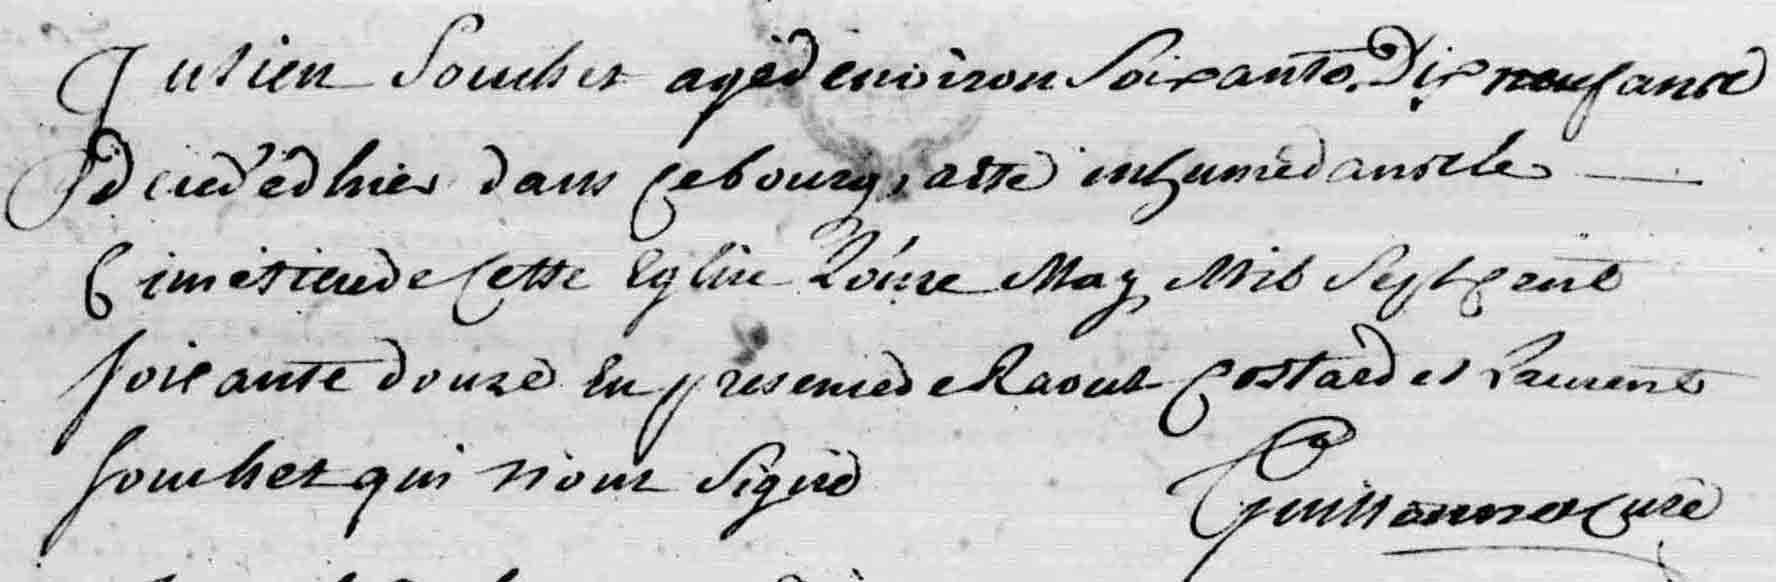 Julien Souchet agé denviron Soixante Dix neuf ans
Décédé d'hier dans ce bourg, a été inhumé dans le
Cimetiere de Cette Eglise May Mil Sept Cent
soixante douze En presence de Raoul Costard et Laurent
souchet qui n'ont Signé
Curé